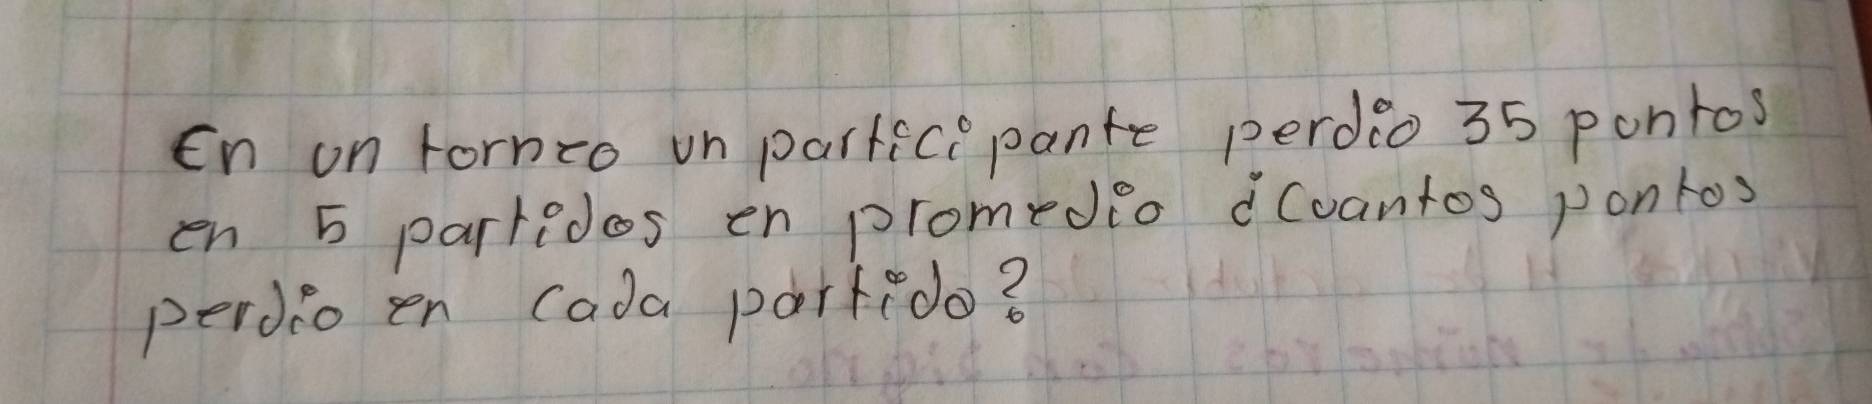 En un torneo un participante perdio 35 puntos
en 5 partidos en promedio ¿Cuantos puntos
perdio en cada partido?